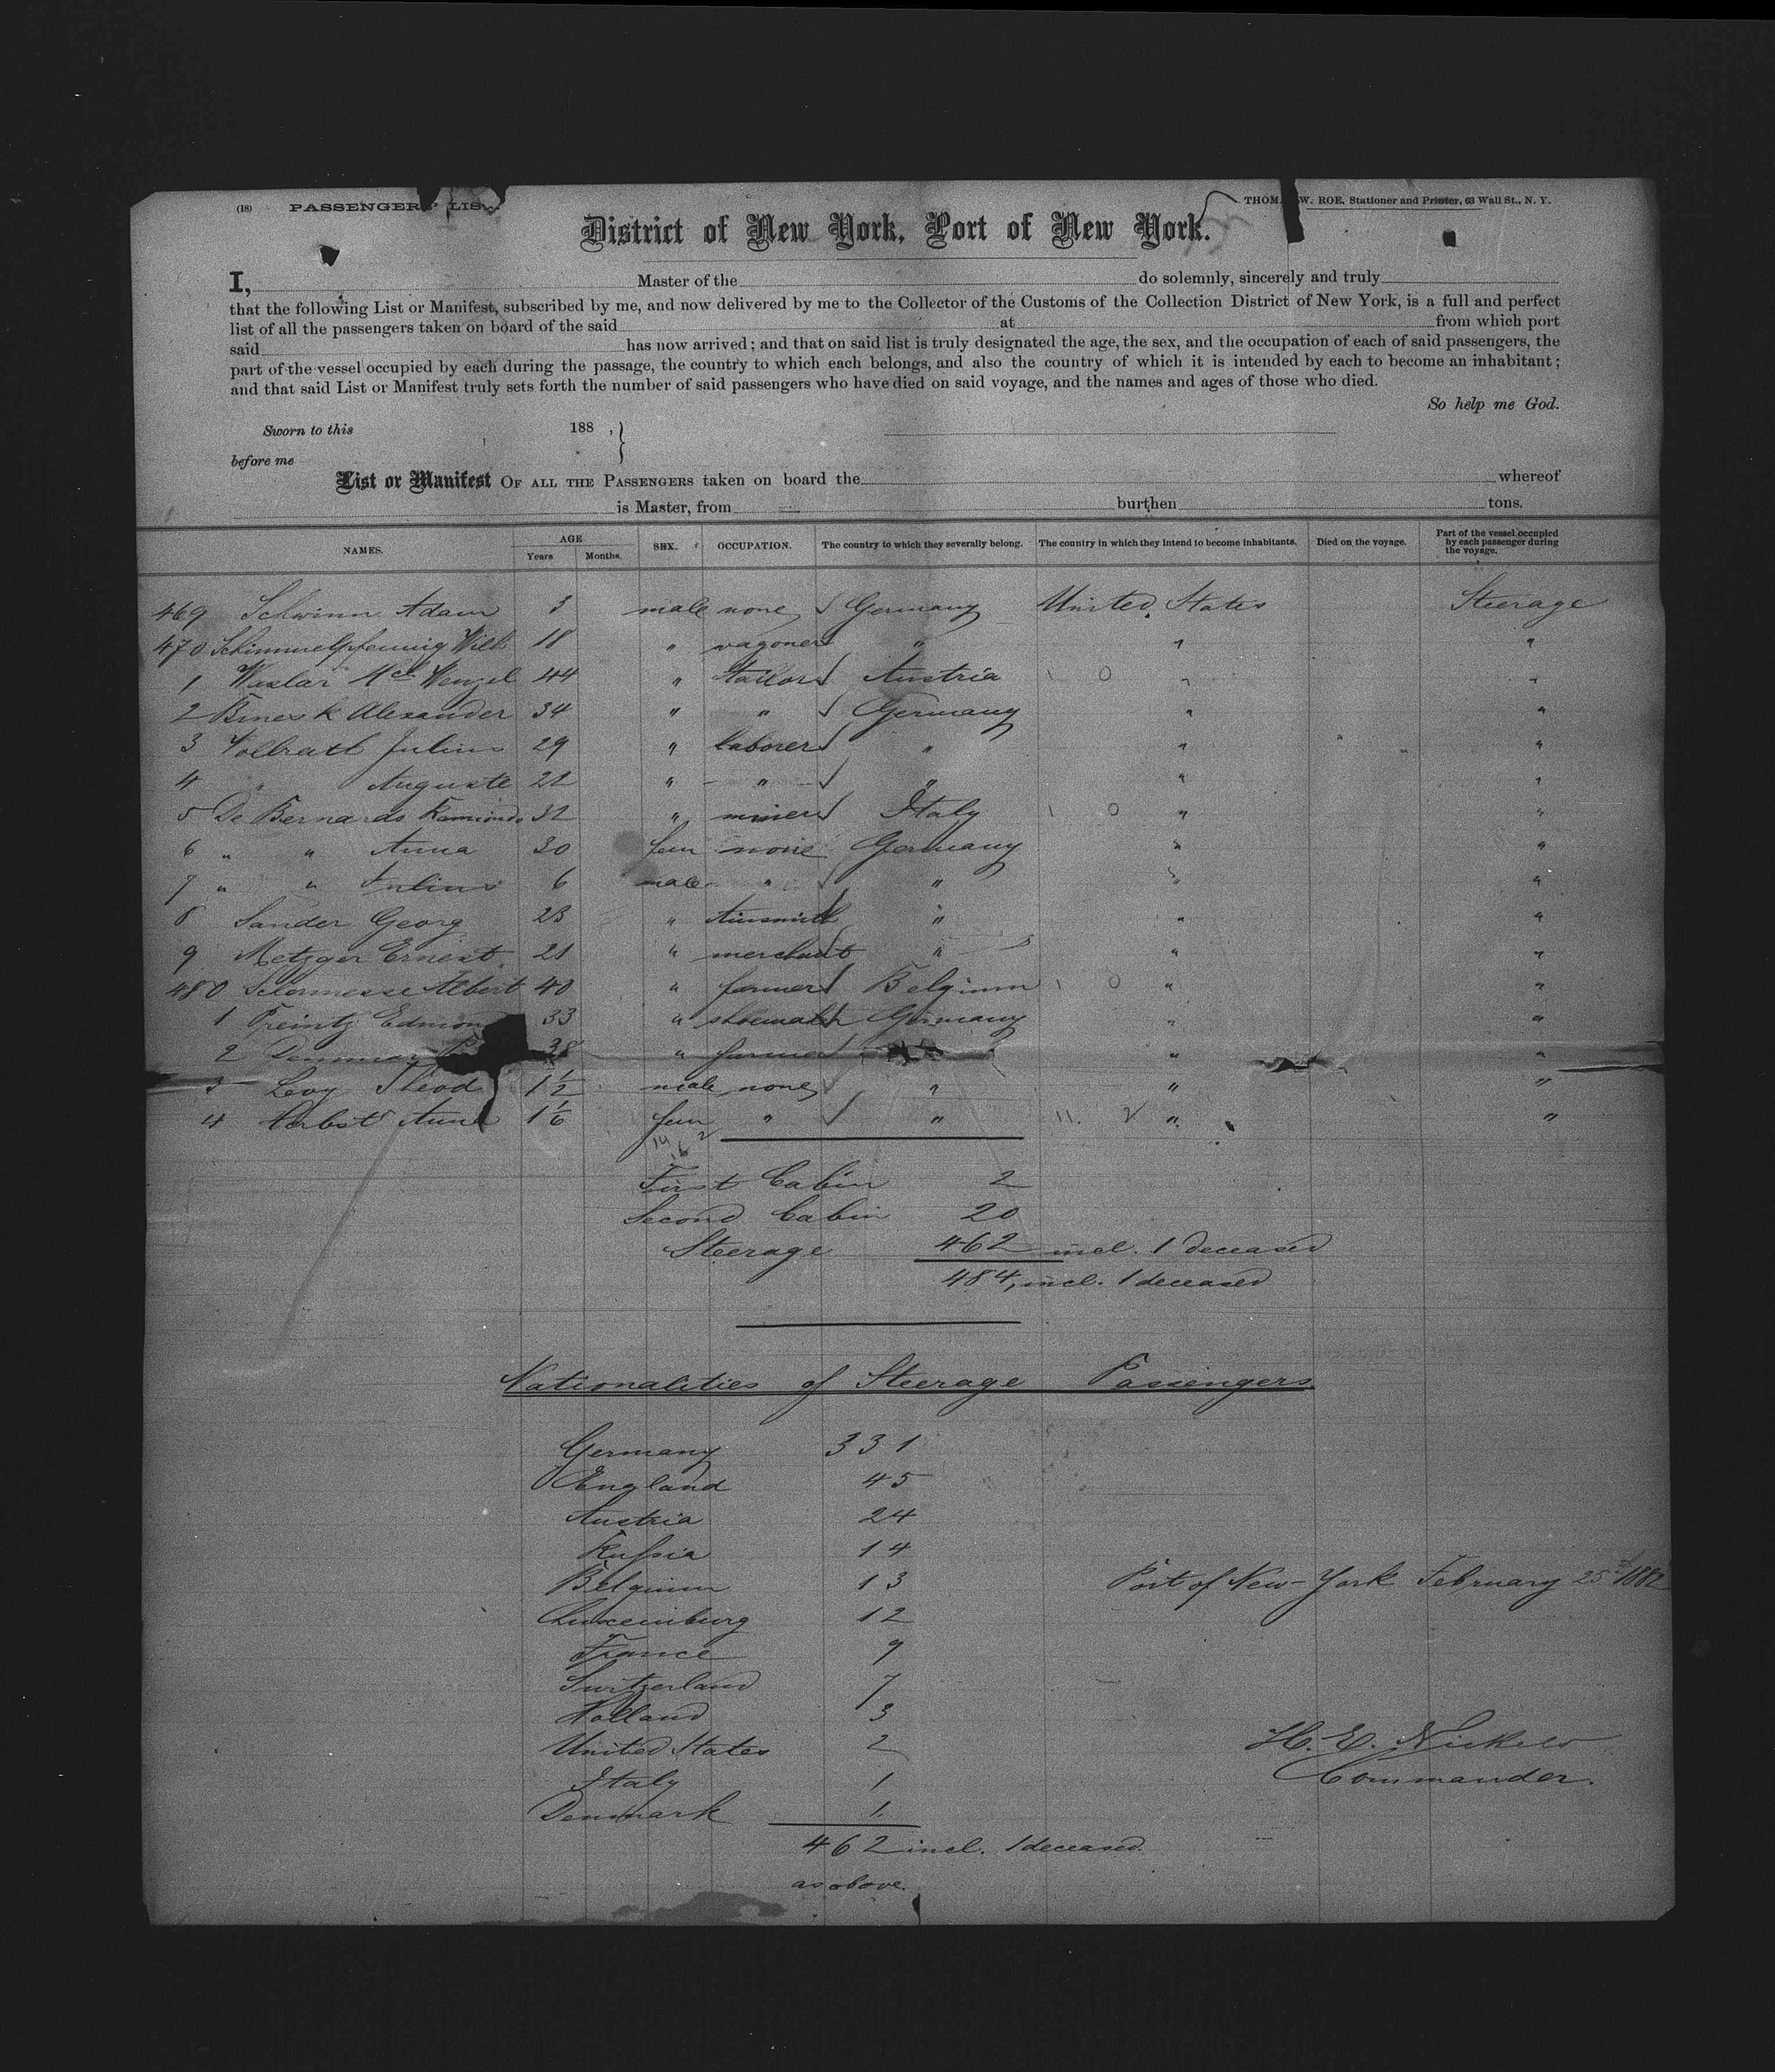 (18) PASSENGERS' LIS THOMAS W. ROE, Stationer and Printer, 63 Wall St., N. Y.
District of New York, Port of New York.
I, Master of the do solemnly, sincerely and truly
that the following List or Manifest, subscribed by me, and now delivered by me to the Collector of the Customs of the Collection District of New York, is a full and perfect
list of all the passengers taken on board of the said at from which port
said has now arrived; and that on said list is truly designated the age, the sex, and the occupation of each of said passengers, the
part of the vessel occupied by each during the passage, the country to which each belongs, and also the country of which it is intended by each to become an inhabitant;
and that said List or Manifest truly sets forth the number of said passengers who have died on said voyage, and the names and ages of those who died.
So help me God.
Sworn to this 188 ,
before me
List or Manifest OF ALL THE PASSENGERS taken on board the whereof
is Master, from burthen tons.
NAMES. AGE Years Months. SEX. OCCUPATION. The country to which they severally belong. The country in which they intend to become inhabitants. Died on the voyage. Part of the vessel occupied by each passenger during the voyage.
469 Schwinn Adam 3 male none Germany United States Steerage
470 Schimmelpfennig Wilh 18 " wagoner " " "
1 Wenzel 44 " tailor Austria " "
2 Alexander 34 " " Germany " "
3 Vollrath Julius 29 " laborer " " "
4 " Auguste 22 " " " " "
5 De Bernardo 32 " miner Italy " "
6 " " Anna 30 fem none Germany " "
7 " " Julius 6 male " " " "
8 Sander Georg 23 " tinsmith " " "
9 Metzger Ernest 21 " merchant " " "
480 Albert 40 " farmer Belgium " "
1 Edmon 33 " shoemaker Germany " "
2 38 " farmer " "
3 Levy Theod 1½ male none " " "
4 Anna 1 1/6 fem " " " "
First Cabin 2
Second Cabin 20
Steerage 462 incl. 1 deceased
484, incl. 1 deceased
Nationalities of Steerage Passengers
Germany 331
England 45
Austria 24
Russia 14
Belgium 13
Port of New-York February 25th 1882
Luxemburg 12
France 9
Switzerland 7
Holland 3
United States 2
H. E. Nickels
Italy 1
Commander.
Denmark 1.
462 incl. 1 deceased.
as above.